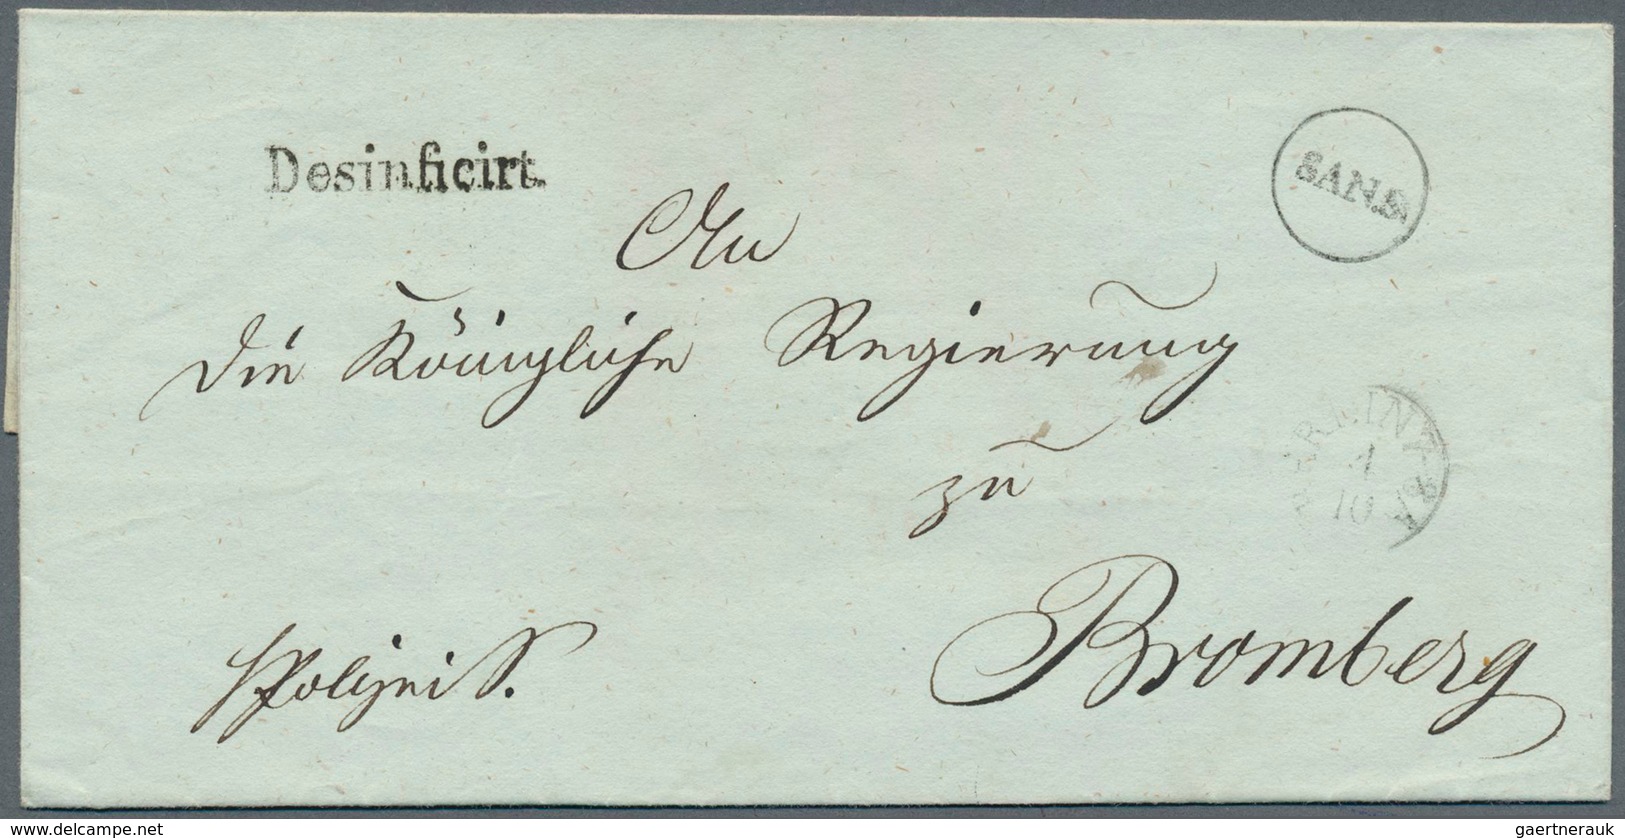 Desinficirt.
SAN.S.
An
die Königliche Regierung
zu
Bromberg
Polizei S.
1
10
delcampe.net
gaertnerauk